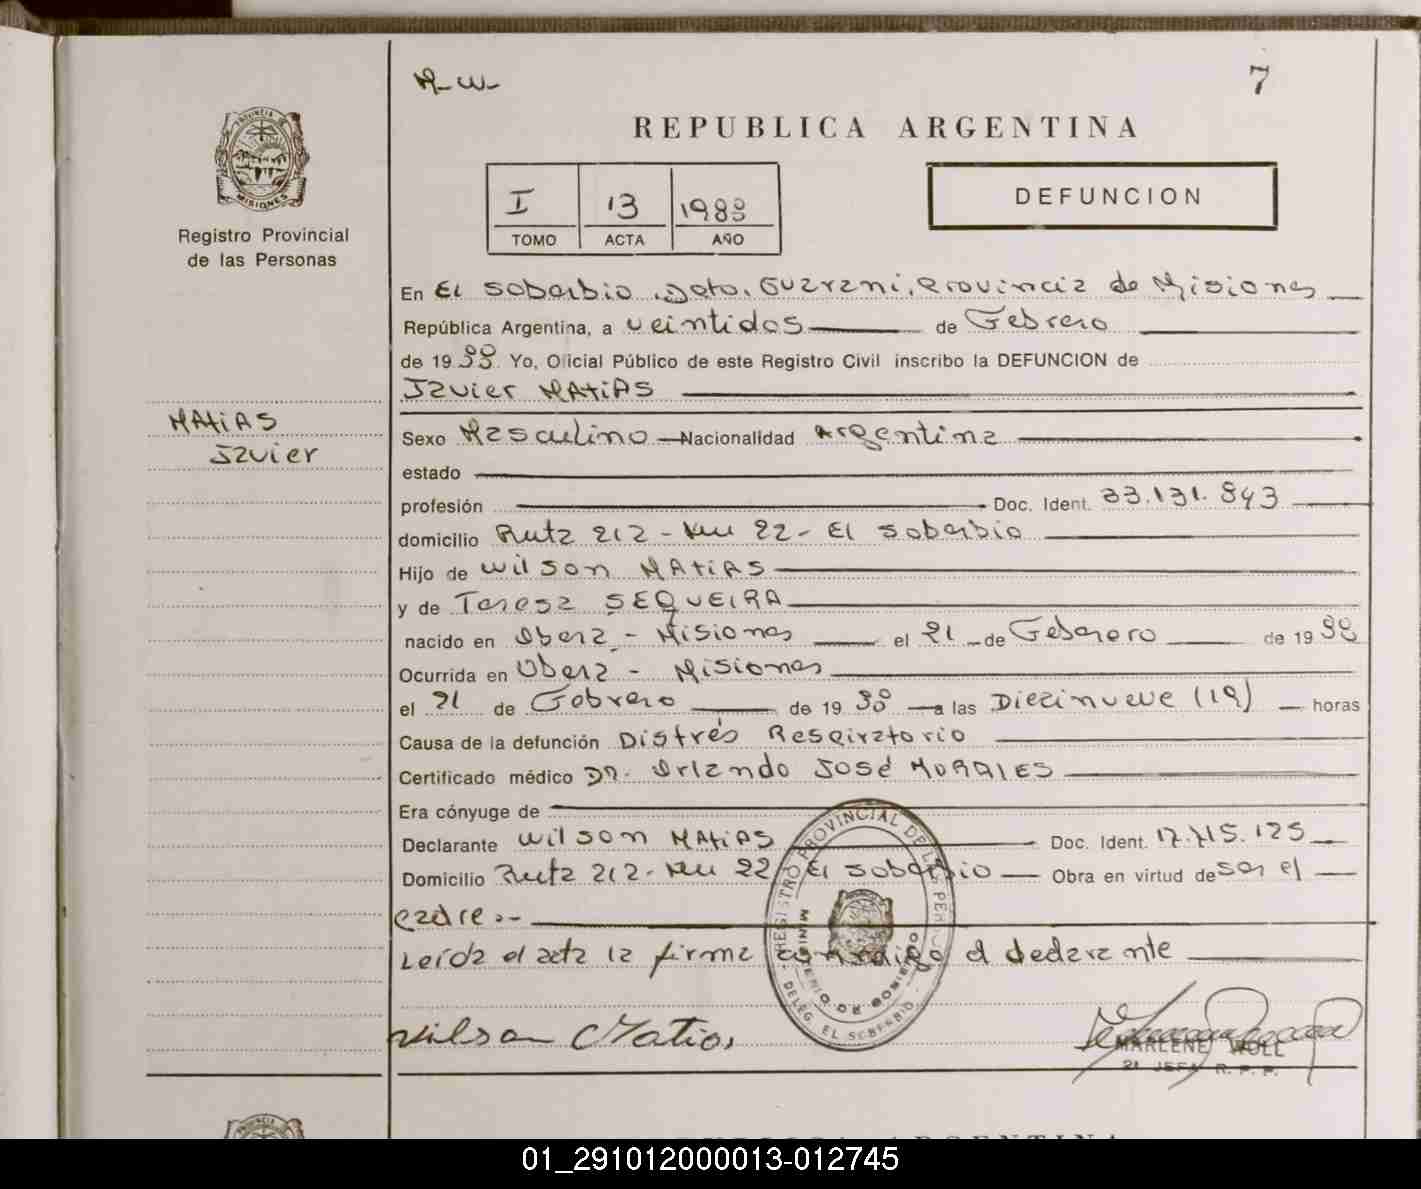 M-W-
7
REPUBLICA ARGENTINA
PROVINCIA DE
MISIONES
Registro Provincial
de las Personas
I 13 1988
TOMO ACTA AÑO
DEFUNCION
En El Soberbio, Dpto. Guarani, Provincia de Misiones
República Argentina, a veintidos de Febrero
de 1988 Yo, Oficial Público de este Registro Civil inscribo la DEFUNCION de
Javier MAtiAS
MAtiAS
Javier
Sexo Masculino Nacionalidad Argentina
estado
profesión Doc. Ident. 33.131.843
domicilio Ruta 212 - Km 22 - El Soberbio
Hijo de Wilson MAtiAS
y de Teresa SEQUEIRA
nacido en Oberá - Misiones el 21 de Febrero de 1988
Ocurrida en Oberá - Misiones
el 21 de Febrero de 1988 a las Diecinueve (19) horas
Causa de la defunción Distrés Respiratorio
Certificado médico Dr. Orlando José MORALES
Era cónyuge de
Declarante Wilson MAtiAS Doc. Ident. 17.715.125
Domicilio Ruta 212 - Km 22 El Soberbio Obra en virtud de ser el
padre.-
Leída el acta la firma conmigo el declarante
REGISTRO PROVINCIAL DE LAS PERSONAS
MINISTERIO DE GOBIERNO
DELEG. EL SOBERBIO
Wilson Matias
MARLENE WOLL
JEFA R. P. P.
PROVINCIA DE
REPUBLICA ARGENTINA
01_291012000013-012745